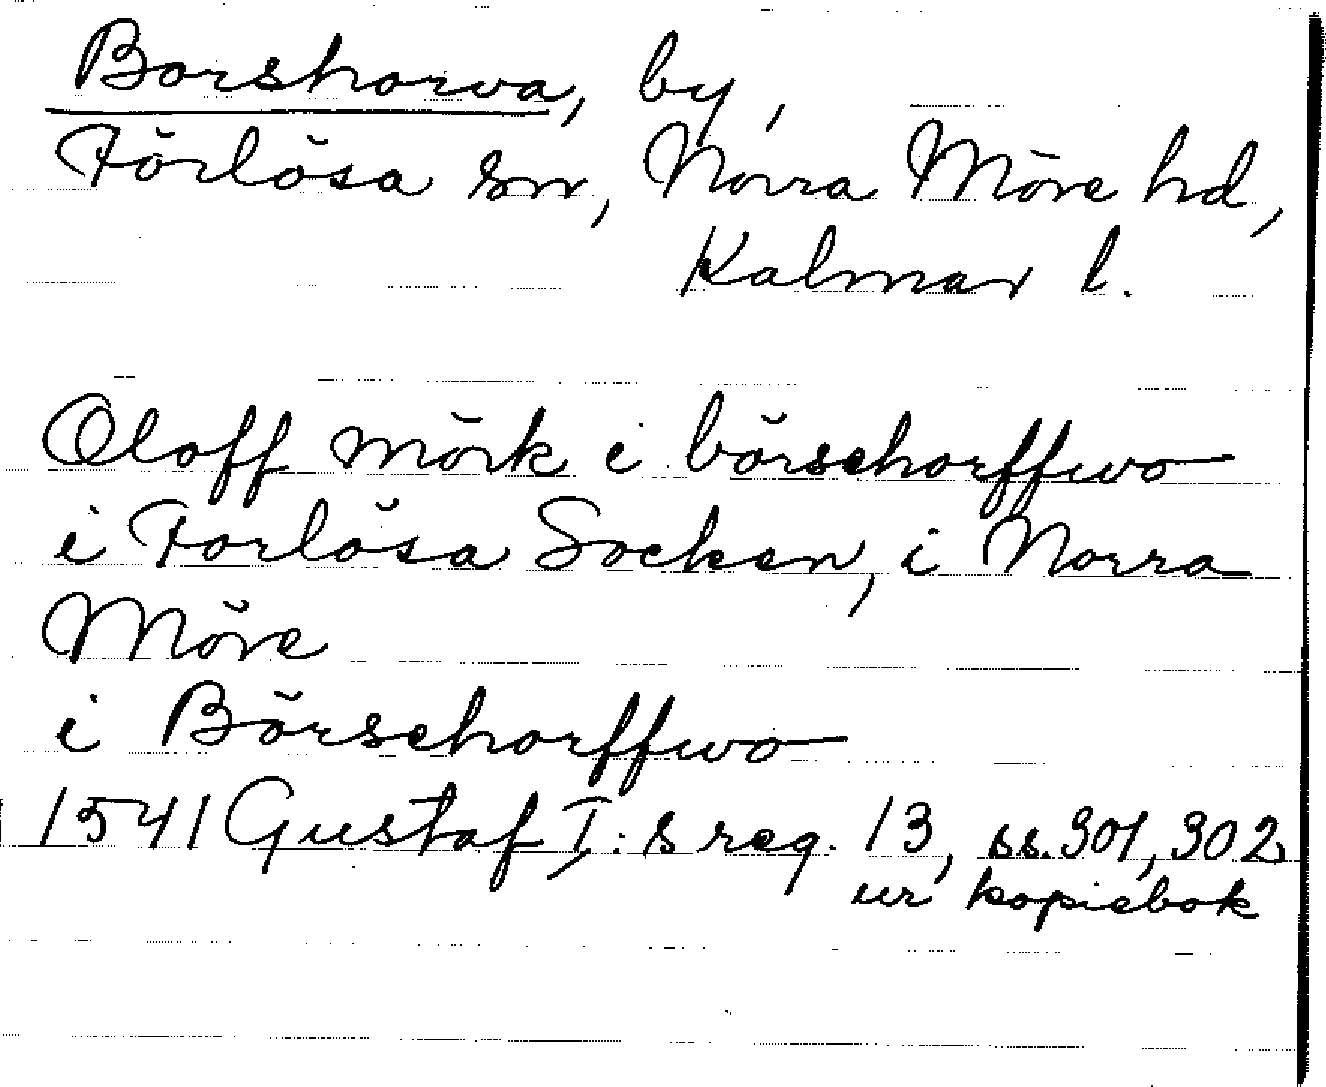 Borshorva, by,
Förlösa sn, Norra Möre hd,
Kalmar l.
Oloff mörk i börsehorffwo
i Forlösa Socken, i Norra
Möre
i Börsehorffwo
1541 Gustaf I:s reg. 13, ss. 301, 302
ur kopiebok